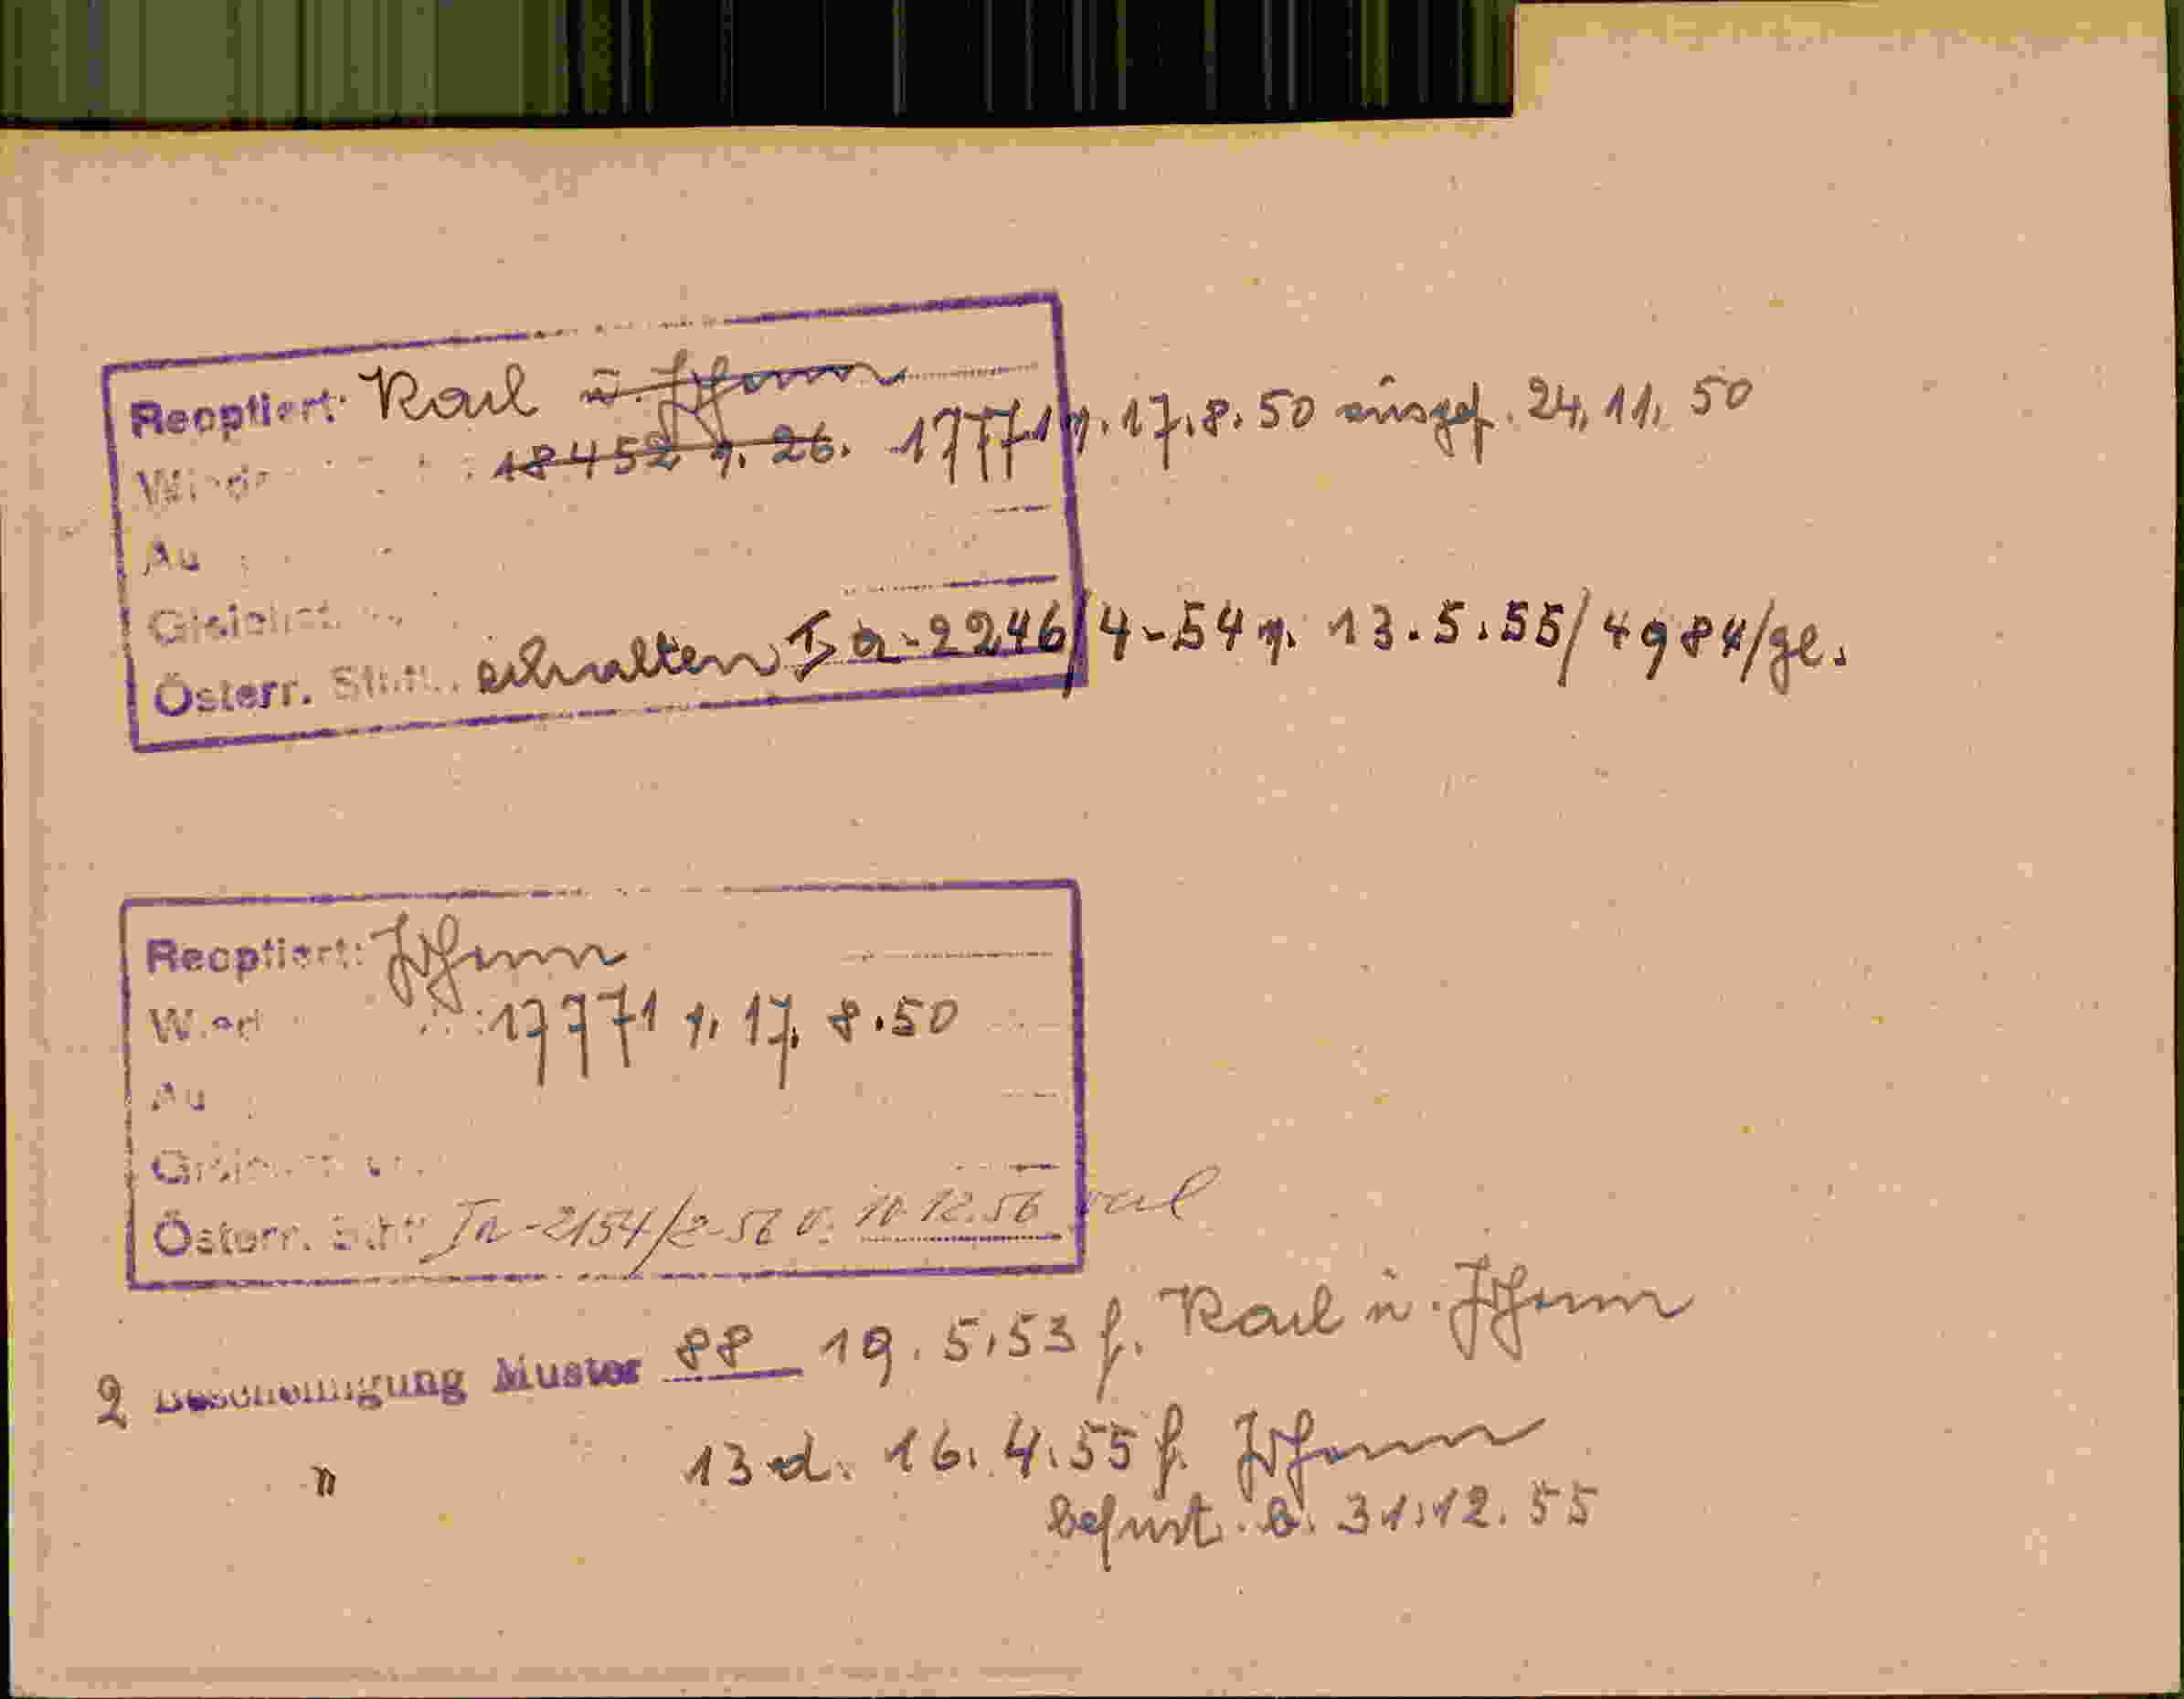 Reoptiert: Karl u. Johann
18452 v. 26. 17771 v. 17.8.50 ausgef. 24.11.50
Au
Gleichst.
Österr. Stb. erhalten Ia-2246/4-54 v. 13.5.55/4984/ge.
Reoptiert: Johann
17771 v. 17.8.50
Au
Österr. Ia-2154/2-56 v. 10.12.56
2 Bescheinigung Muster 88 19.5.53 f. Karl u. Johann
" 13d. 16.4.55 f. Johann
befrist. b. 31.12.55